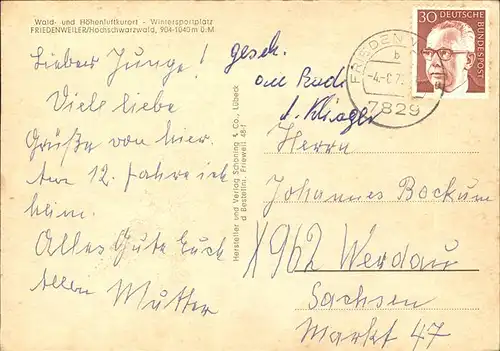 Wald- und Höhenluftkurort - Wintersportplatz
FRIEDENWEILER/Hochschwarzwald, 904-1040 m ü.M
Lieber Junge!
Viele liebe
Grüße von hier.
Am 12. fahre ich
heim.
Alles Gute Euch
allen Mutter
Hersteller und Verlag Schöning & Co., Lübeck
Bestellnr. Friewell 48-1
gesch.
30 DEUTSCHE
BUNDESPOST
FRIEDENW
b
7829
Herrn
Johannes Bockum
X962 Werdau
Sachsen
Markt 47